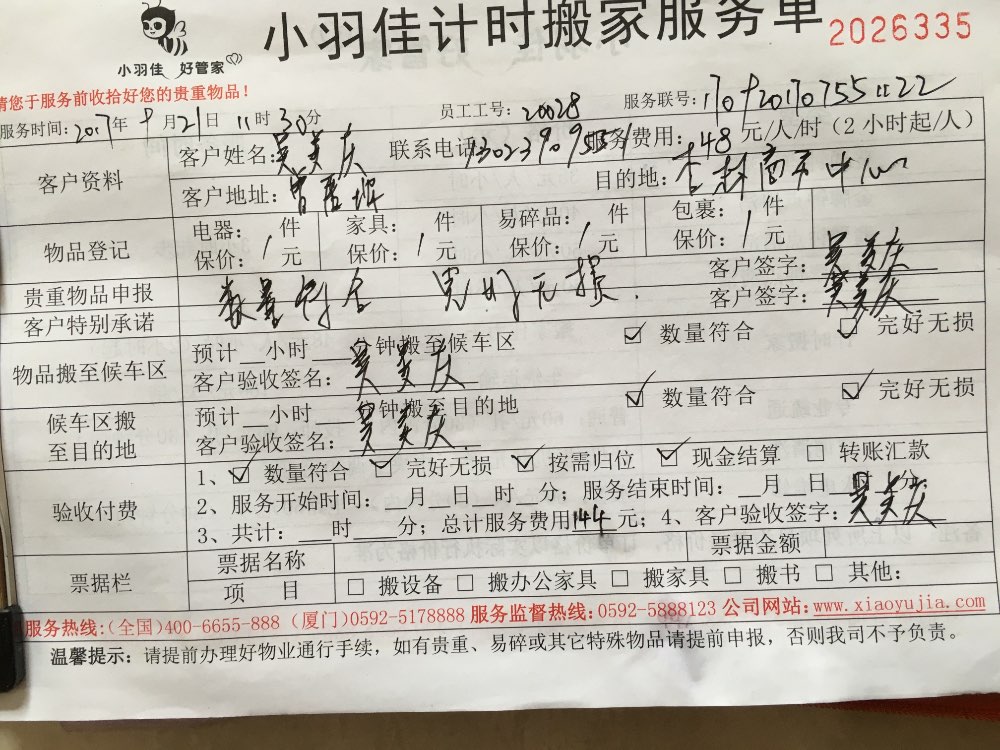 小羽佳计时搬家服务单 2026335
小羽佳 好管家
请您于服务前收拾好您的贵重物品!
服务时间: 2017年9月21日11时30分 员工工号: 20028 服务联号: 170920170755
客户资料
客户姓名: 吴美庆 联系电话 服务费用: 48元/人/时(2小时起/人)
客户地址: 曾厝垵 目的地: 杏林商务中心
物品登记
电器: 件 家具: 件 易碎品: 件 包裹: 件
保价: / 元 保价: / 元 保价: / 元 保价: / 元
贵重物品申报 数量符合 完好无损. 客户签字: 吴美庆
客户特别承诺 客户签字: 吴美庆
物品搬至候车区
预计__小时__分钟搬至候车区 ☑ 数量符合 ☑ 完好无损
客户验收签名: 吴美庆
候车区搬至目的地
预计__小时__分钟搬至目的地 ☑ 数量符合 ☑ 完好无损
客户验收签名: 吴美庆
验收付费
1、☑ 数量符合 ☑ 完好无损 ☑ 按需归位 ☑ 现金结算 □ 转账汇款
2、服务开始时间: __月__日__时__分; 服务结束时间: __月__日__时__分;
3、共计: __时__分; 总计服务费用144元; 4、客户验收签字: 吴美庆
票据栏
票据名称 票据金额
项 目 □ 搬设备 □ 搬办公家具 □ 搬家具 □ 搬书 □ 其他:
服务热线:(全国)400-6655-888 (厦门)0592-5178888 服务监督热线:0592-5888123 公司网站:www.xiaoyujia.com
温馨提示: 请提前办理好物业通行手续,如有贵重、易碎或其它特殊物品请提前申报,否则我司不予负责。